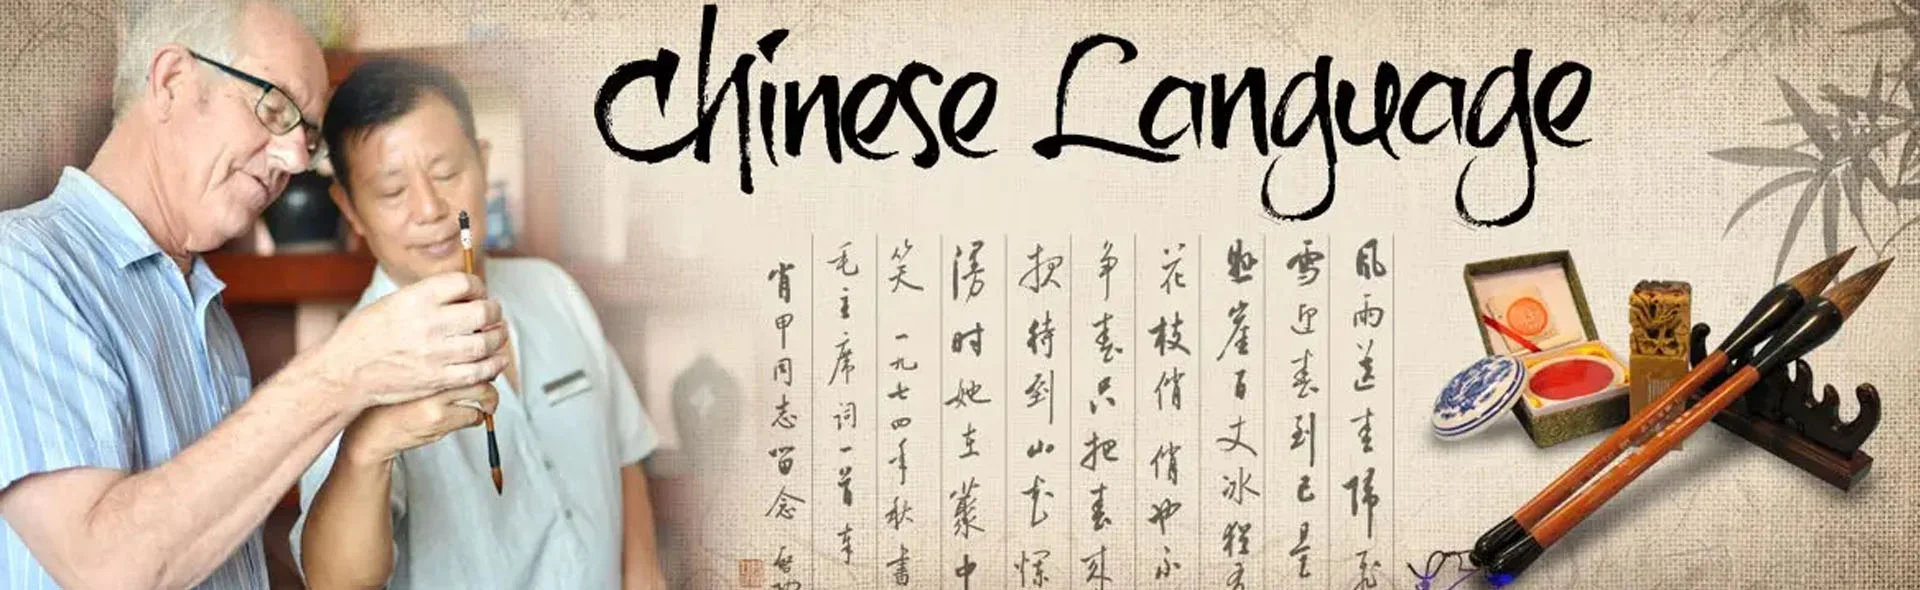 Chinese Language
风雨送春归飞
雪迎春到已是
悬崖百丈冰犹
花枝俏俏也不
争春只把春来
报待到山花烂
漫时她在丛中
笑 一九七四年秋書
毛主席词一首奉
肖甲同志留念